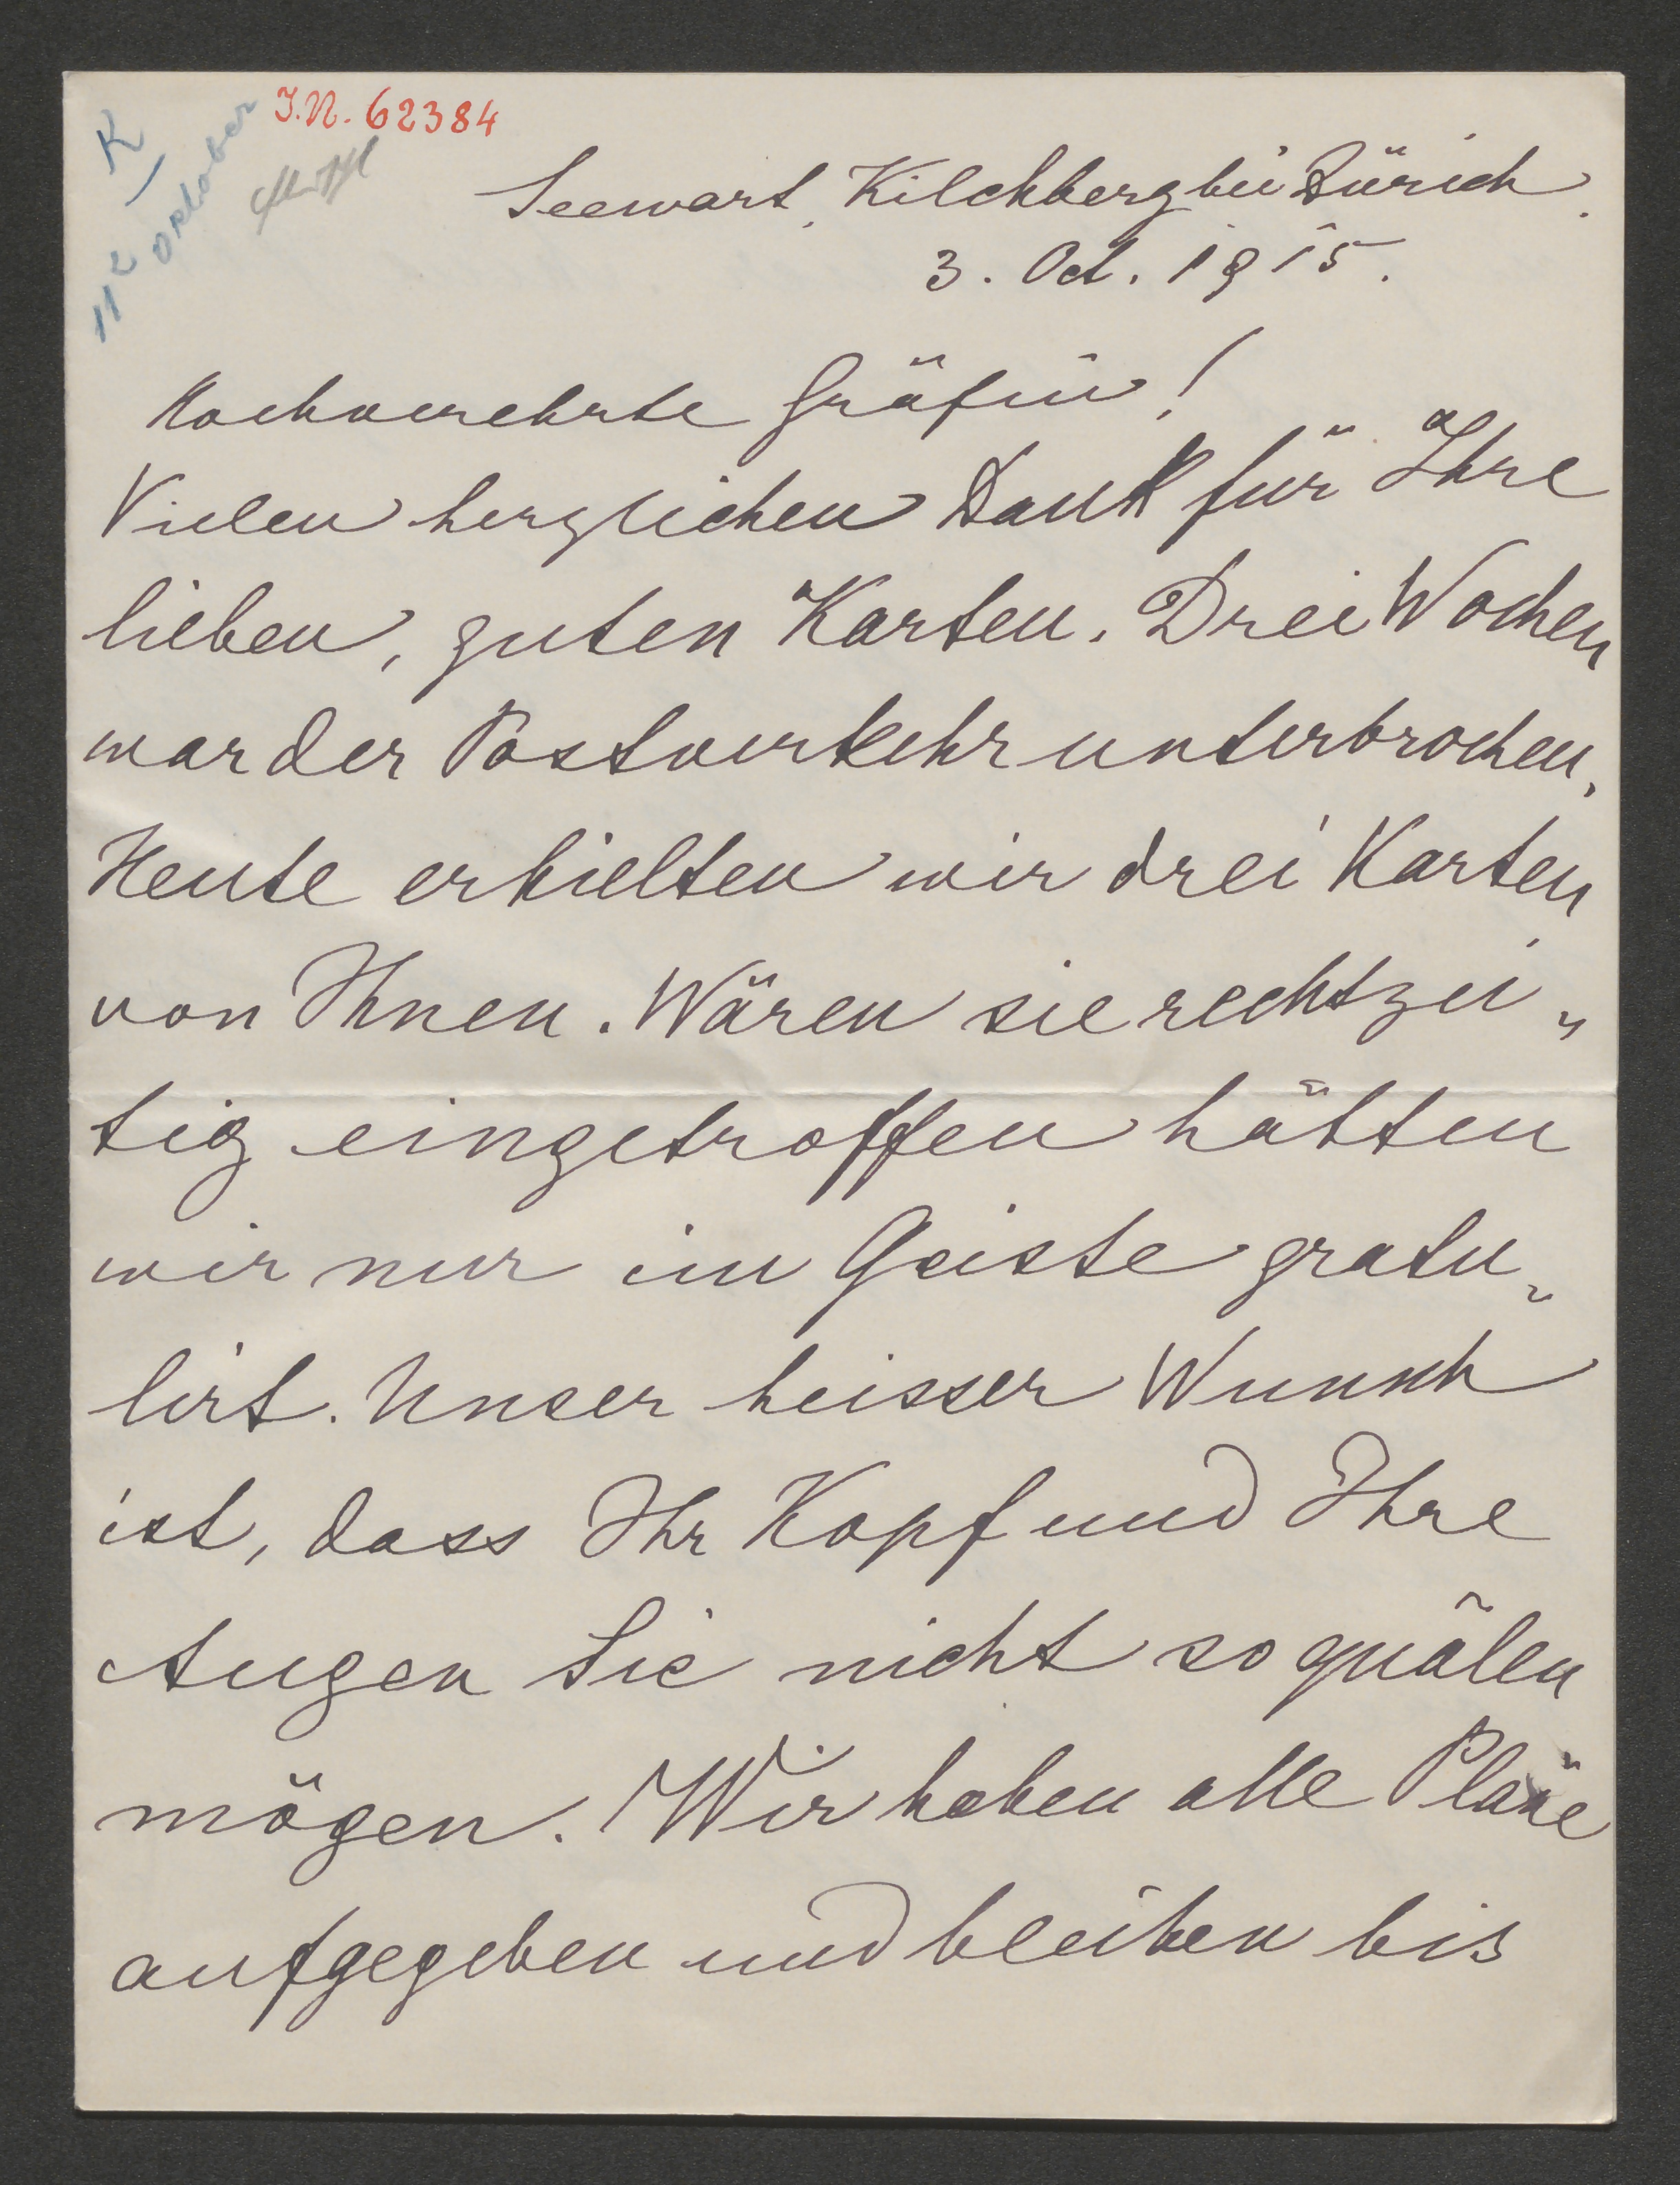 J.N. 62384
K
October
112
Seewart, Kilchberg bei Zürich.
3. Oct. 1915.
Hochverehrte Gräfin!
Vielen herzlichen Dank für Ihre
lieben, guten Karten. Drei Wochen
war der Postverkehr unterbrochen,
Heute erhielten wir drei Karten
von Ihnen. Wären sie rechtzei„
tig eingetroffen hätten
wir nur im Geiste gratu„
lirt. Unser heisser Wunsch
ist, dass Ihr Kopf und Ihre
Augen Sie nicht so quälen
mögen. Wir haben alle Pläne
aufgegeben und bleiben bis